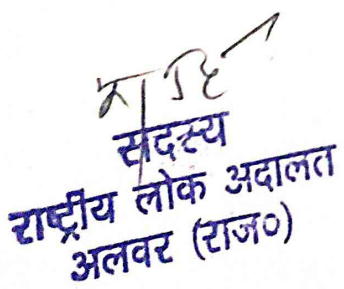 सदस्य
राष्ट्रीय लोक अदालत
अलवर (राज०)